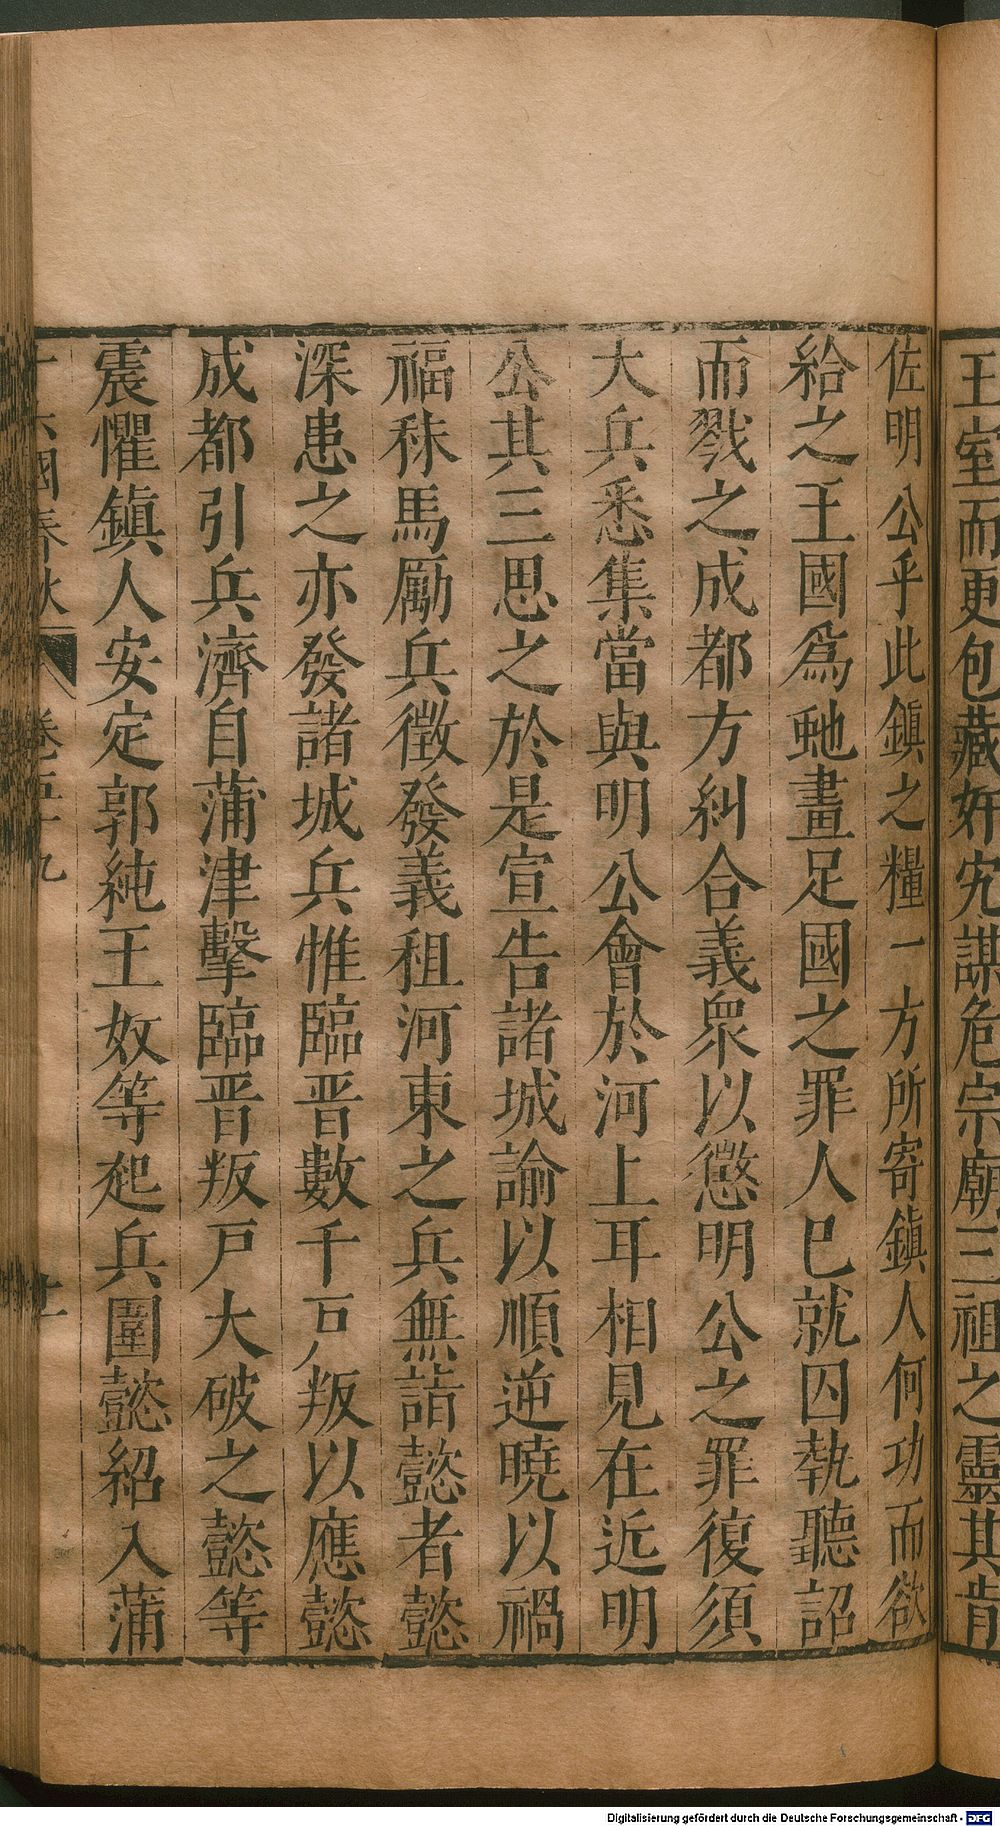 王室而更包藏奸宄謀危宗廟三祖之靈其肯
佐明公乎此鎮之糧一方所寄鎮人何功而欲
給之王國爲虵畫足國之罪人已就囚執聽詔
而戮之成都方糾合義衆以懲明公之罪復須
大兵悉集當與明公會於河上耳相見在近明
公其三思之於是宣告諸城諭以順逆曉以禍
福秣馬厲兵徵發義租河東之兵無詣懿者懿
深患之亦發諸城兵惟臨晋數千戸叛以應懿
成都引兵濟自蒲津擊臨晋叛戸大破之懿等
震懼鎮人安定郭純王奴等起兵圍懿紹入蒲
十六國春秋 卷五十九 十一
Digitalisierung gefördert durch die Deutsche Forschungsgemeinschaft - DFG